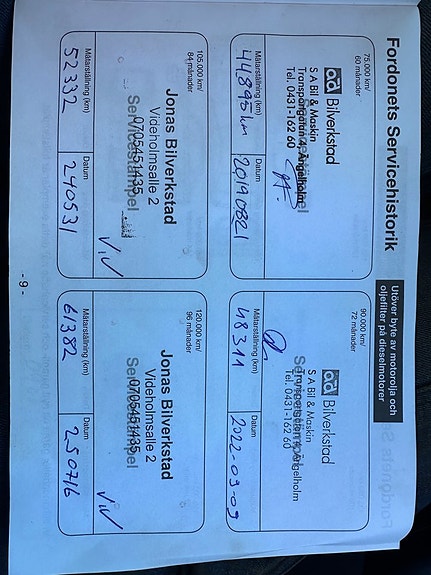 Fordonets Servicehistorik
Utöver byte av motorolja och
oljefilter på dieselmotorer
75.000 km/
60 månader
ad Bilverkstad
S A Bil & Maskin
Transportgatan 4, Ängelholm
Tel. 0431-162 60
Mätarställning (km)
Datum
44895 km
20190821
90.000 km/
72 månader
ad Bilverkstad
S A Bil & Maskin
Transportgatan 4, Ängelholm
Tel. 0431-162 60
Mätarställning (km)
Datum
48311
2022-09-09
105.000 km/
84 månader
Jonas Bilverkstad
Videholmsalle 2
0705451435
Servicestämpel
Mätarställning (km)
Datum
52332
240531
120.000 km/
96 månader
Jonas Bilverkstad
Videholmsalle 2
0705451435
Servicestämpel
Mätarställning (km)
Datum
61382
250716
- 9 -